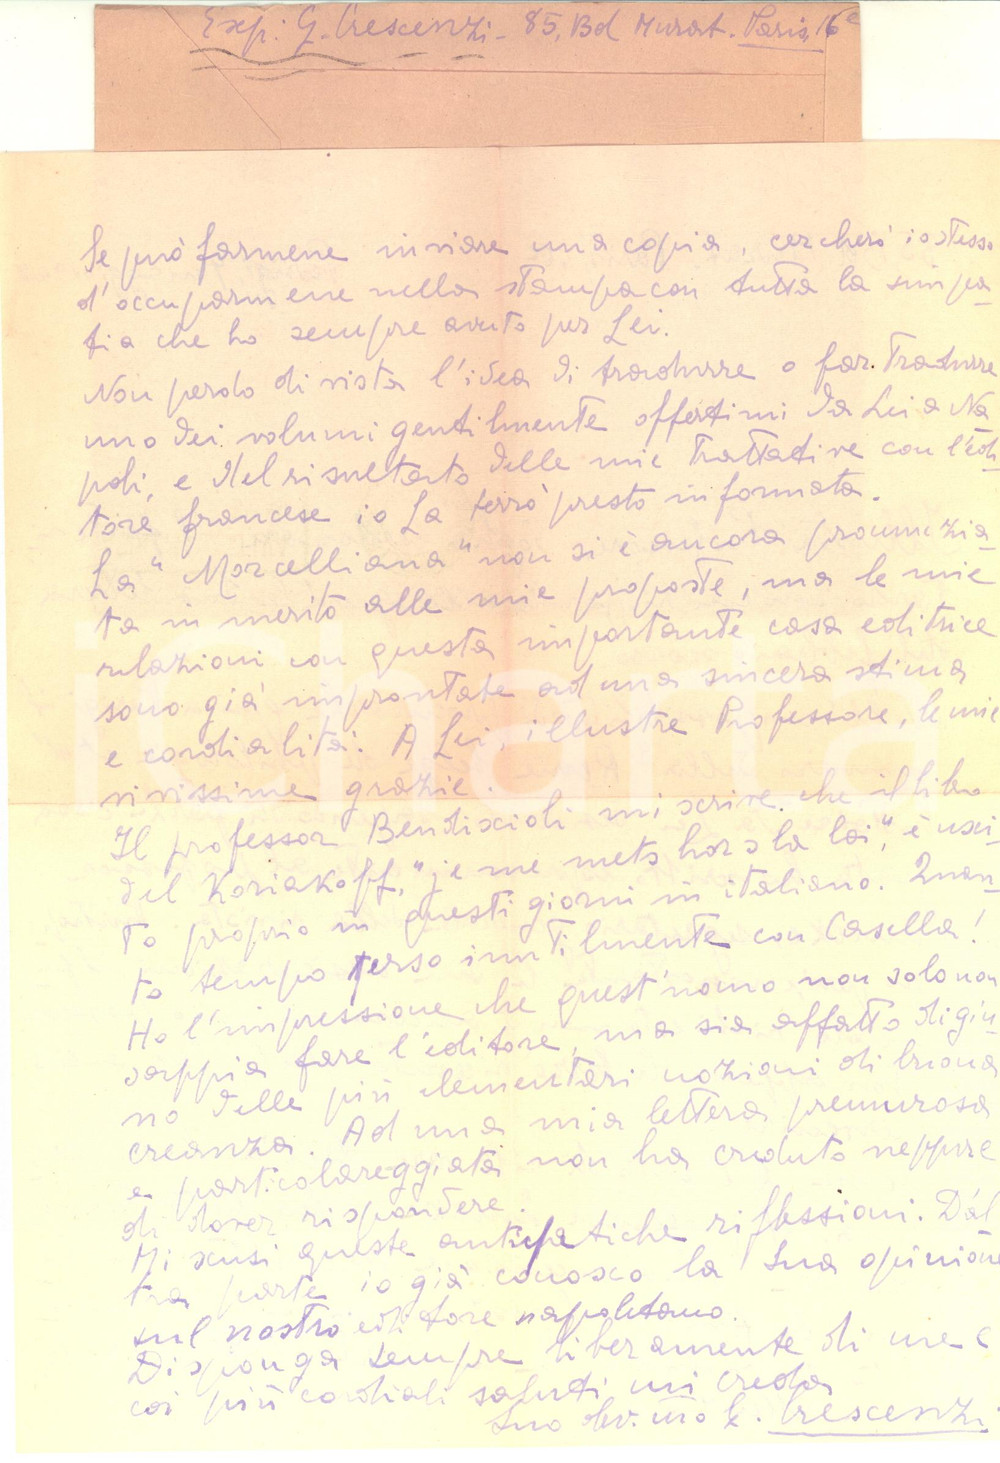 Exp: G. Crescenzi - 85, Bd Murat. Paris 16e
Se può farmene inviare una copia, cercherò io stesso
d'occuparmene nella stampa con tutta la simpa-
tia che ho sempre avuto per Lei.
Non perdo di vista l'idea di tradurre o far tradurre
uno dei volumi gentilmente offertimi da Lei a Na-
poli, e del risultato delle mie trattative con l'edi-
tore francese io La terrò presto informata.
La "Morcelliana" non si è ancora pronunzia-
ta in merito alle mie proposte, ma le mie
relazioni con questa importante casa editrice
sono già improntate ad una sincera stima
e cordialità. A Lei, illustre Professore, le mie
vivissime grazie.
Il professor Bendiscioli mi scrive che il libro
del Koriakoff, "je me mets hors la loi", è usci-
to proprio in questi giorni in italiano. Quan-
to tempo perso inutilmente con Casella!
Ho l'impressione che quest'uomo non solo non
sappia fare l'editore, ma sia affatto digiu-
no delle più elementari nozioni di buona
creanza. Ad una mia lettera premurosa
e particolareggiata non ha creduto neppure
di dover rispondere.
Mi scusi queste antipatiche riflessioni. D'al-
tra parte io già conosco la Sua opinione
sul nostro editore napoletano.
Disponga sempre liberamente di me e
coi più cordiali saluti mi creda
Suo dev.mo G. Crescenzi
ichata